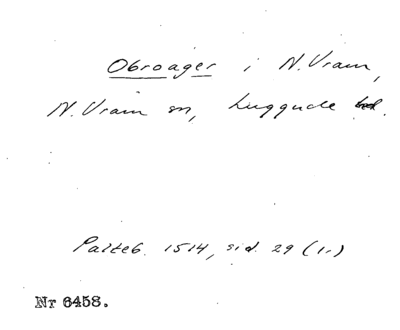 Obroager i N. Vram,
N. Vram sn, Luggude hd.
Palteb. 1514, sid. 29 (1.)
Nr 6458.